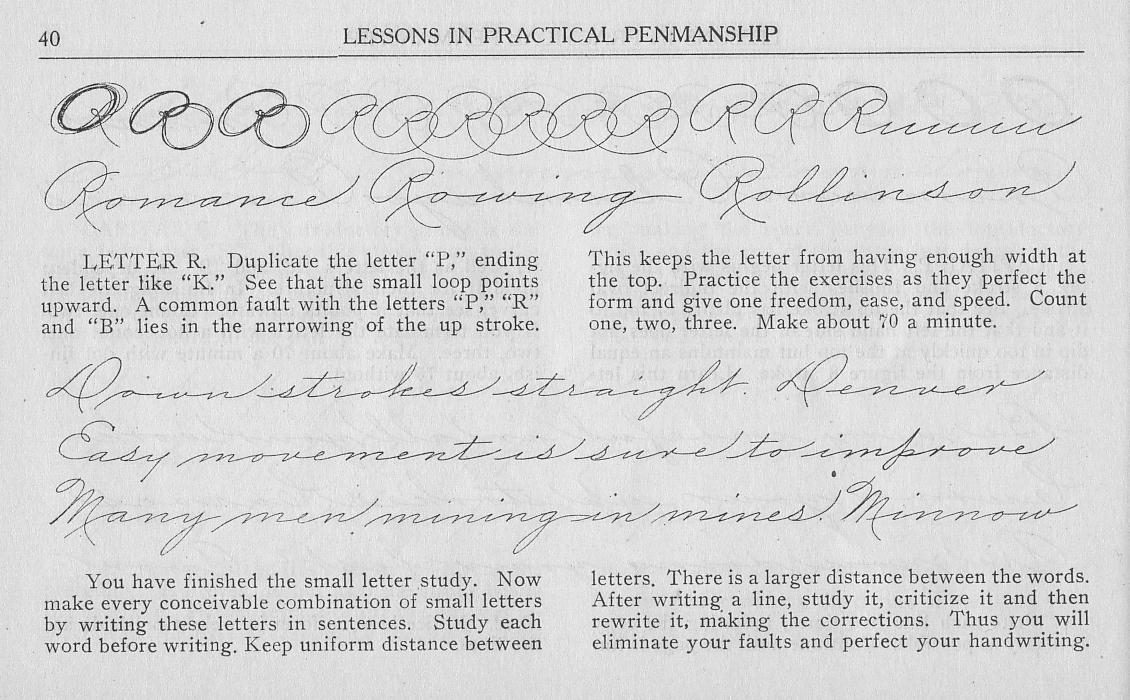 40 LESSONS IN PRACTICAL PENMANSHIP
R R R R R R R R R R R R Ruuuuu
Romance Rowing Rollinson
LETTER R. Duplicate the letter “P,” ending
the letter like “K.” See that the small loop points
upward. A common fault with the letters “P,” “R”
and “B” lies in the narrowing of the up stroke.
This keeps the letter from having enough width at
the top. Practice the exercises as they perfect the
form and give one freedom, ease, and speed. Count
one, two, three. Make about 70 a minute.
Down strokes straight. Denver
Easy movement is sure to improve
Many men mining in mines. Minnow
You have finished the small letter study. Now
make every conceivable combination of small letters
by writing these letters in sentences. Study each
word before writing. Keep uniform distance between
letters. There is a larger distance between the words.
After writing a line, study it, criticize it and then
rewrite it, making the corrections. Thus you will
eliminate your faults and perfect your handwriting.